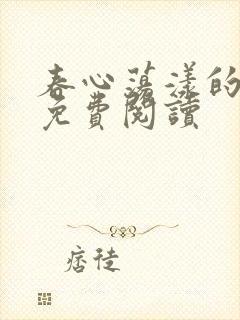 春心蕩漾的
免費閱讀
痞徒